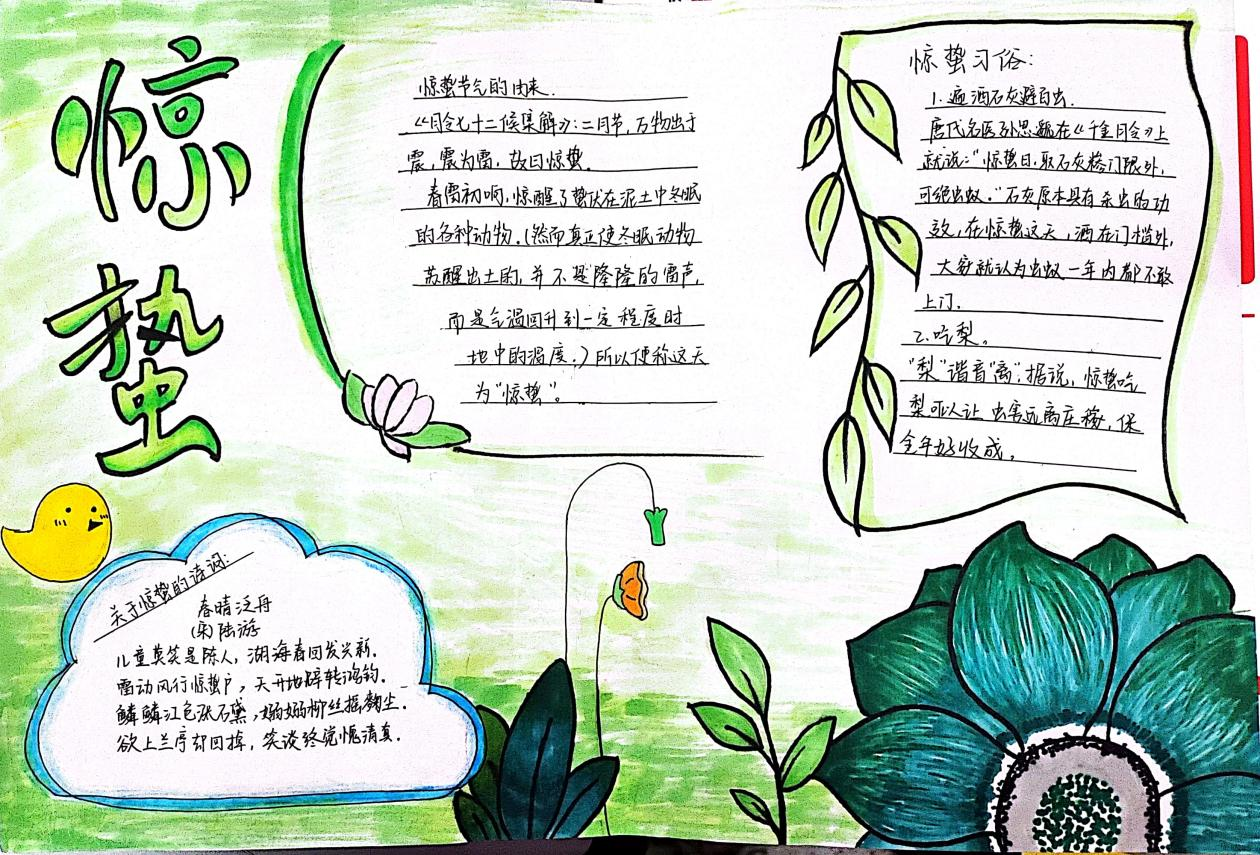 惊
蛰
惊蛰节气的由来.
《月令七十二候集解》:二月节,万物出于
震,震为雷,故曰惊蛰.
春雷初响,惊醒了蛰伏在泥土中冬眠
的各种动物.(然而真正使冬眠动物
苏醒出土的,并不是隆隆的雷声,
而是气温回升到一定程度时
地中的温度.)所以便称这天
为"惊蛰"。
惊蛰习俗:
1.遍洒石灰避百虫.
唐代名医孙思邈在《千金月令》上
就说:"惊蛰日,取石灰糁门限外,
可绝虫蚁."石灰原本具有杀虫的功
效,在惊蛰这天,洒在门槛外,
大家就认为虫蚁一年内都不敢
上门.
2.吃梨。
"梨"谐音"离",据说,惊蛰吃
梨可以让虫害远离庄稼,保
全年好收成。
关于惊蛰的诗词:
春晴泛舟
(宋)陆游
儿童莫笑是陈人,湖海春回发兴新.
雷动风行惊蛰户,天开地辟转鸿钧.
鳞鳞江色涨石黛,嫋嫋柳丝摇麴尘.
欲上兰亭却回掉,笑谈终觉愧清真.